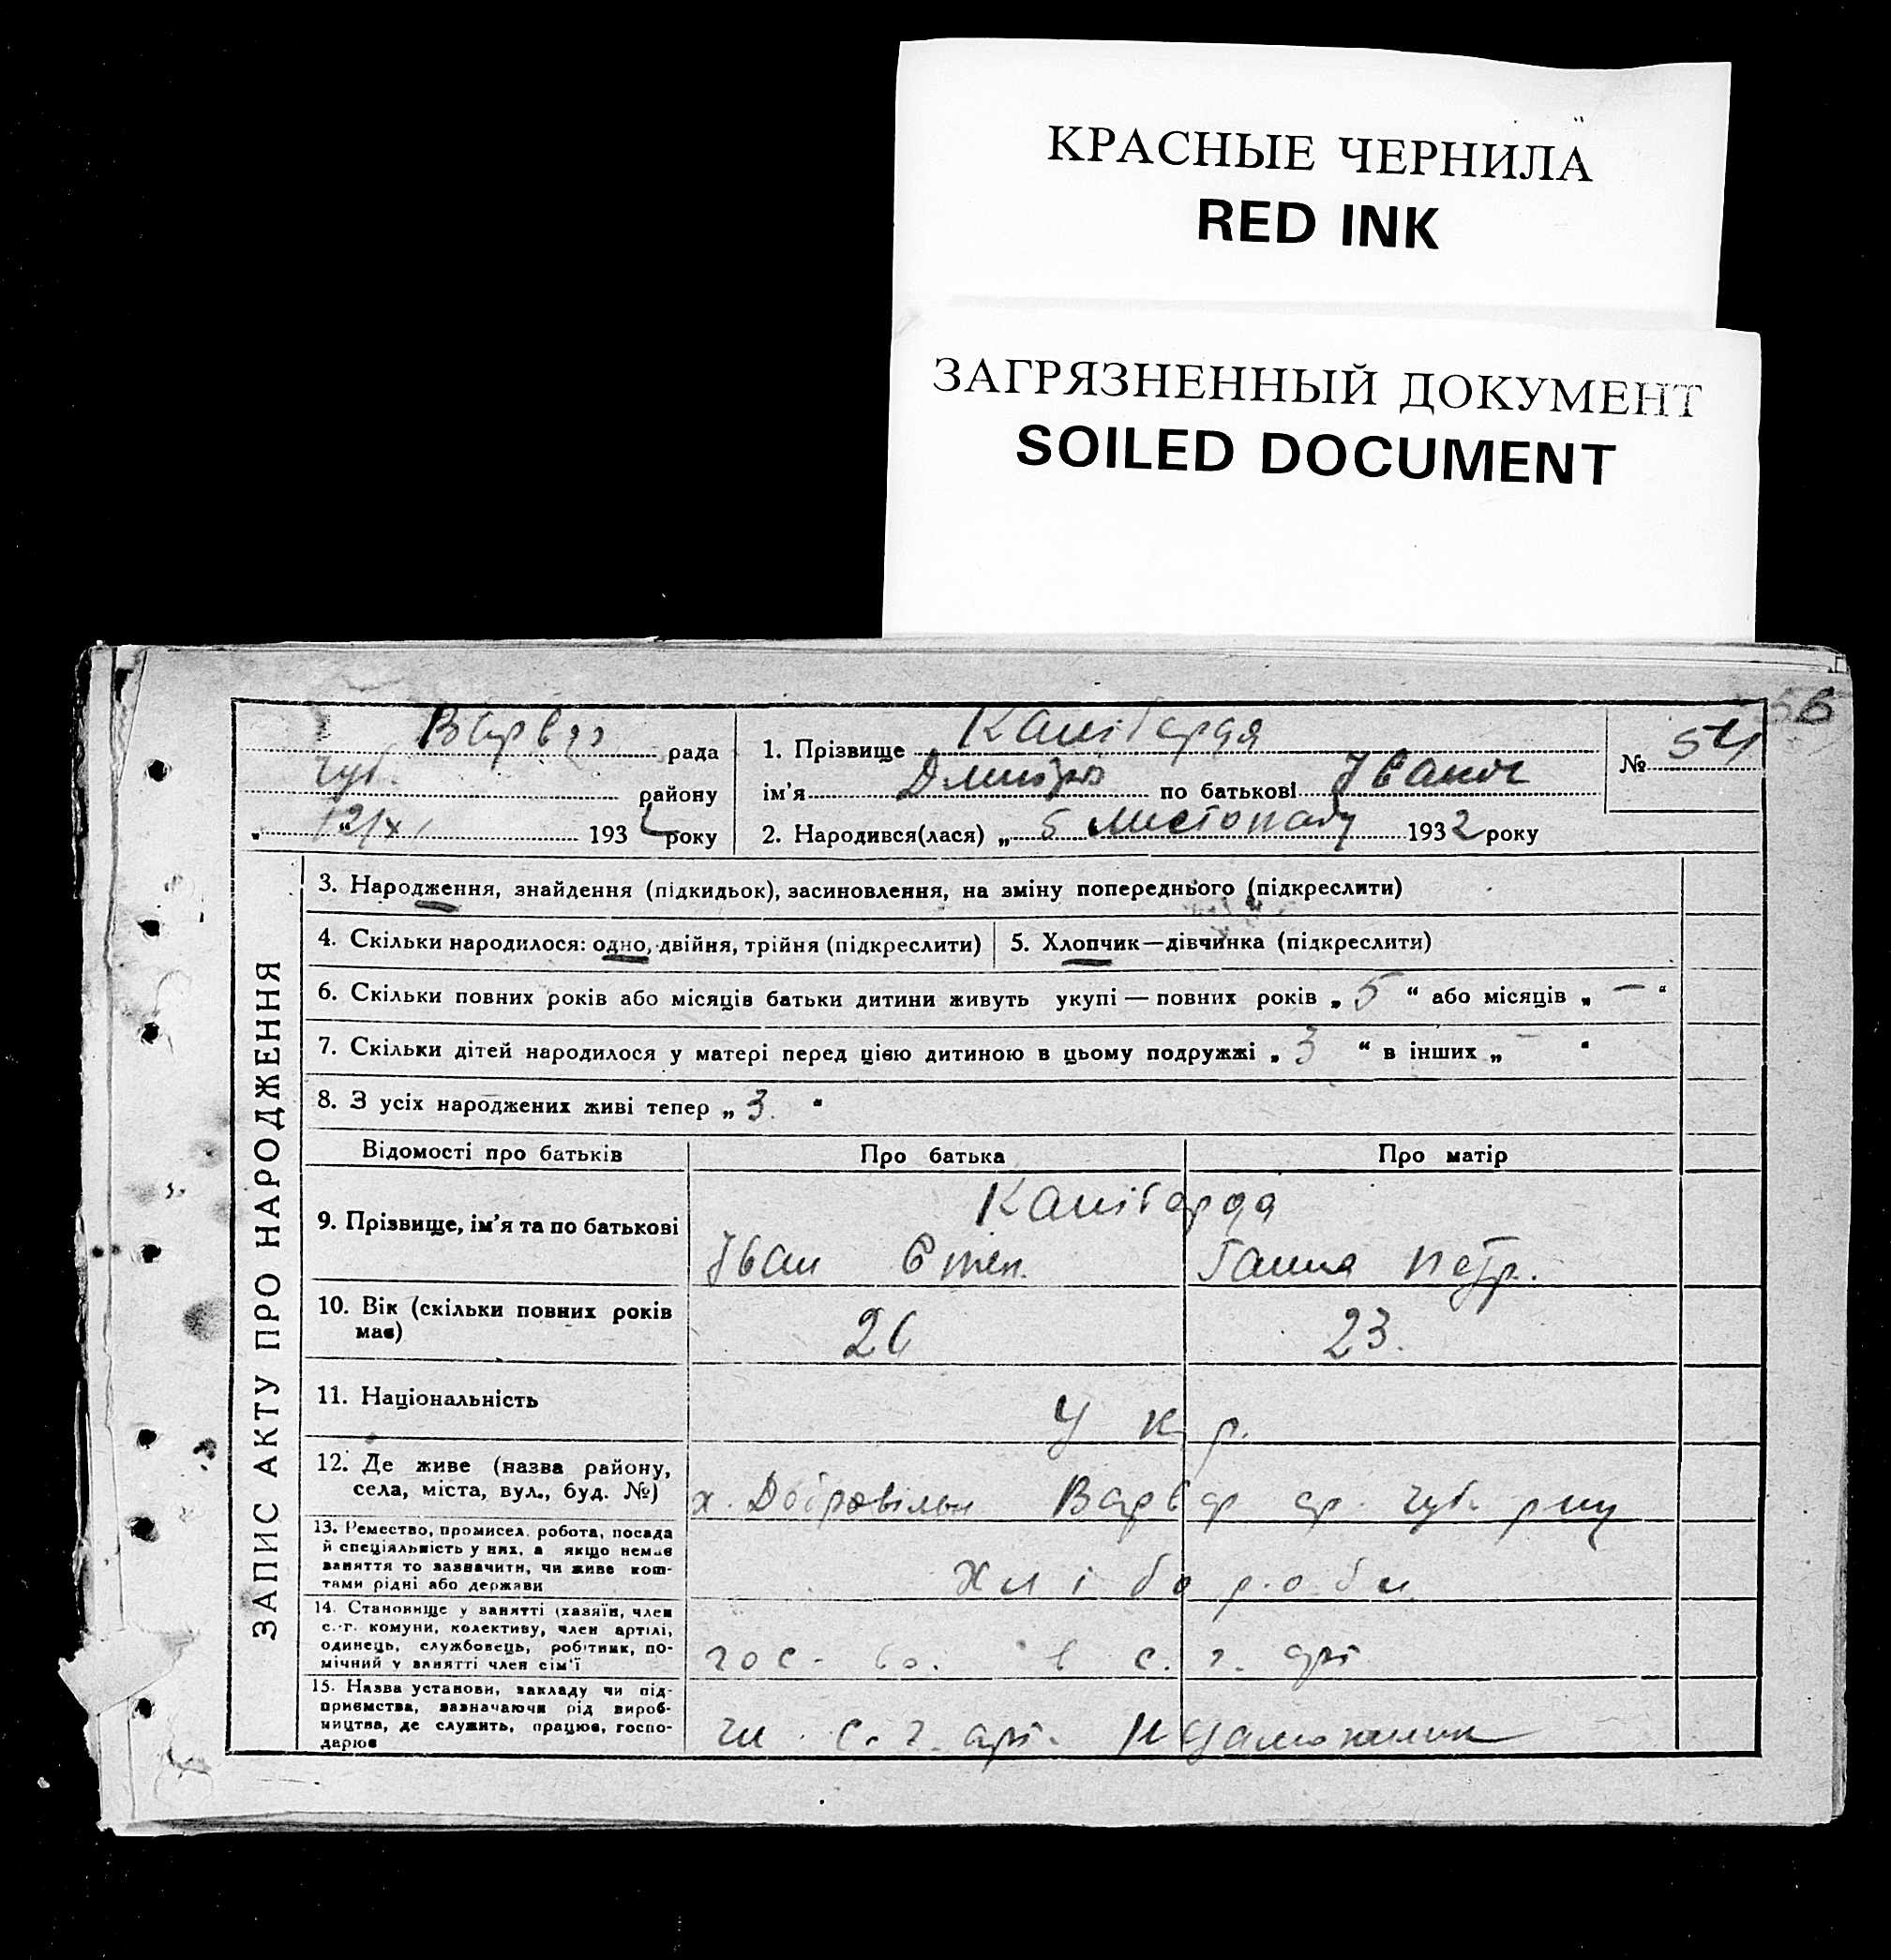 КРАСНЫЕ ЧЕРНИЛА
RED INK
ЗАГРЯЗНЕННЫЙ ДОКУМЕНТ
SOILED DOCUMENT
56
рада
чуб. району
„ 12/XI 1932 року
1. Прізвище
ім'я Дмитро по батькові Іванов
2. Народився(лася) „ 5 Листопаду 1932 року
№ 54
ЗАПИС АКТУ ПРО НАРОДЖЕННЯ
3. Народження, знайдення (підкидьок), засиновлення, на зміну попереднього (підкреслити)
4. Скільки народилося: одно, двійня, трійня (підкреслити)
5. Хлопчик—дівчинка (підкреслити)
6. Скільки повних років або місяців батьки дитини живуть укупі — повних років „ 5 “ або місяців „ — “
7. Скільки дітей народилося у матері перед цією дитиною в цьому подружжі „ 3 “ в інших „ — “
8. З усіх народжених живі тепер „ 3. “
Відомості про батьків Про батька Про матір
9. Прізвище, ім'я та по батькові
Іван Степ. Ганна Петр.
10. Вік (скільки повних років
має)
26 23.
11. Національність
Укр.
12. Де живе (назва району,
села, міста, вул., буд. №)
х. Добровільн Варвар ср. чуб. рну
13. Ремество, промисел. робота, посада
й спеціяльність у них, а якщо немає
заняття то зазначити, чи живе кош-
тами рідні або держави
Хлібороби
14. Становище у занятті (хазяїн, член
с.-г. комуни, колективу, член артілі,
одинець, службовець, робітник, по-
мічний у занятті член сім'ї
гос-во. в с. г. арт
15. Назва установи, закладу чи під-
приємства, зазначаючи рід вироб-
ництва, де служить, працює, госпо-
дарює
чл. с. г. арт. Незаможник